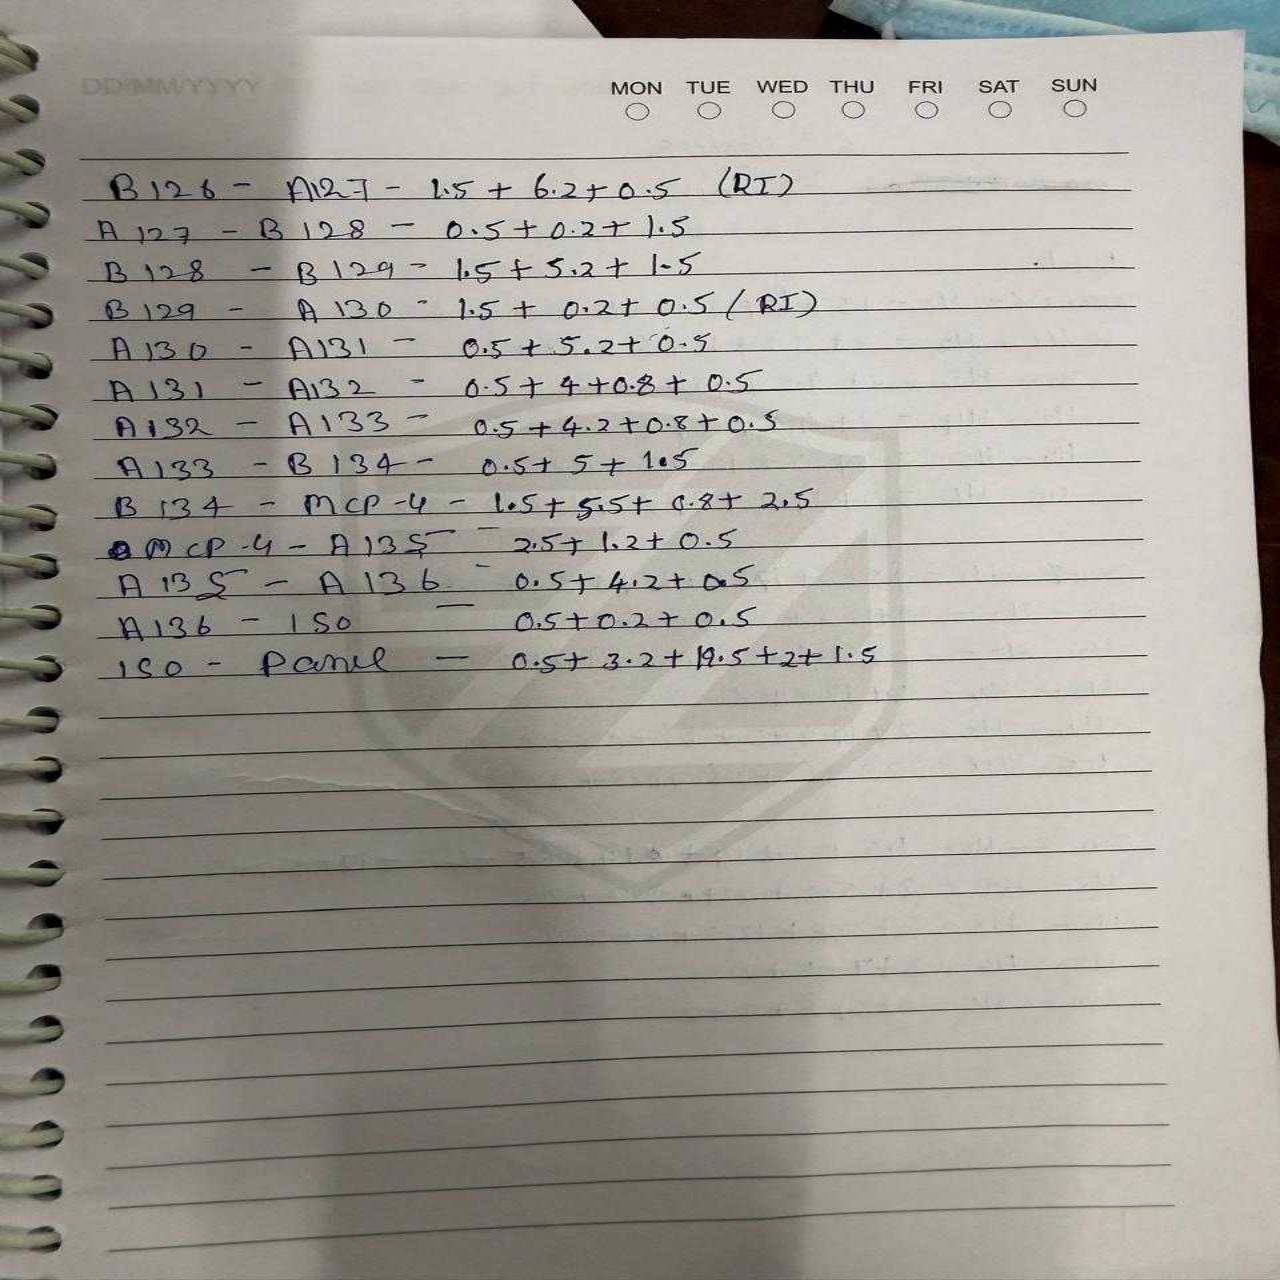 DD/MM/YYYY
MON TUE WED THU FRI SAT SUN
B126 - A127 - 1.5 + 6.2 + 0.5 (RI)
A127 - B128 - 0.5 + 0.2 + 1.5
B128 - B129 - 1.5 + 5.2 + 1.5
B129 - A130 - 1.5 + 0.2 + 0.5 (RI)
A130 - A131 - 0.5 + 5.2 + 0.5
A131 - A132 - 0.5 + 4 + 0.8 + 0.5
A132 - A133 - 0.5 + 4.2 + 0.8 + 0.5
A133 - B134 - 0.5 + 5 + 1.5
B134 - MCP-4 - 1.5 + 5.5 + 0.8 + 2.5
MCP-4 - A135 - 2.5 + 1.2 + 0.5
A135 - A136 - 0.5 + 4.2 + 0.5
A136 - ISO - 0.5 + 0.2 + 0.5
ISO - Panel - 0.5 + 3.2 + 19.5 + 2 + 1.5